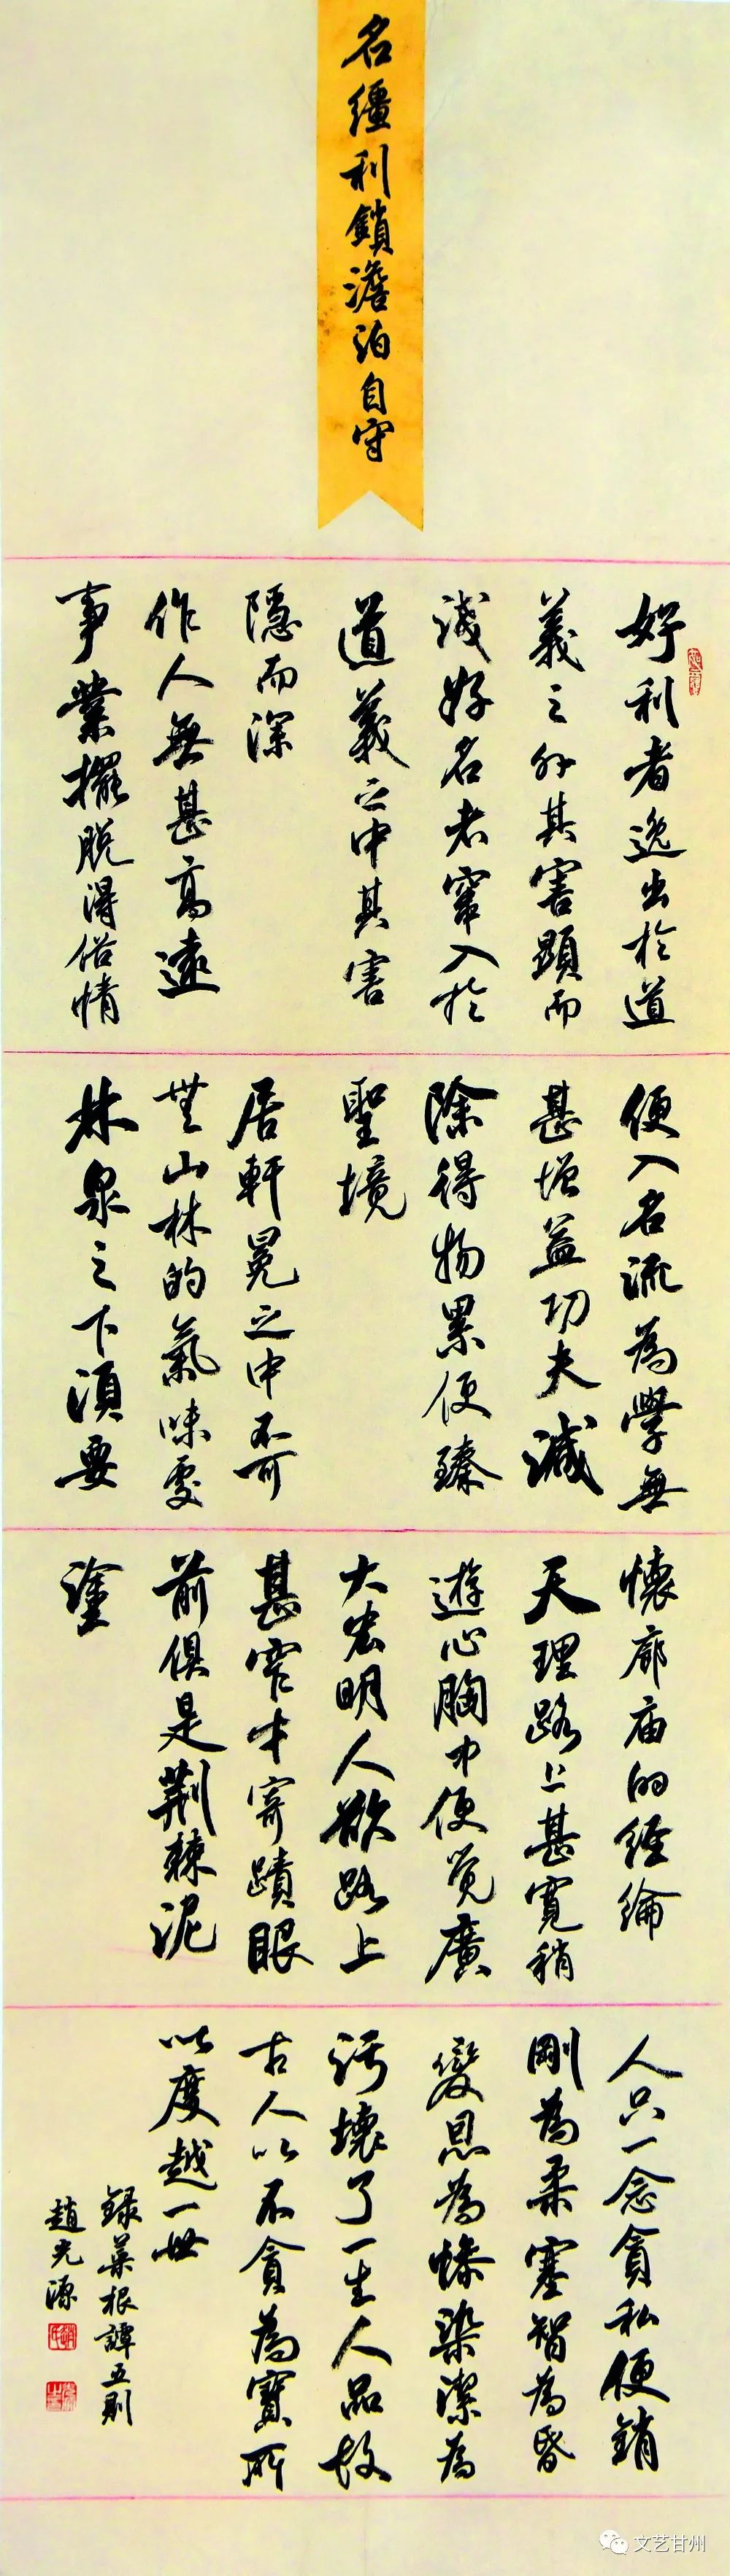 名繮利鎖澹泊自守
好利者逸出於道
義之外其害顯而
淺好名者竄入於
道義之中其害
隱而深
作人無甚高遠
事業擺脫得俗情
便入名流為學無
甚增益功夫減
除得物累便臻
聖境
居軒冕之中不可
無山林的氣味處
林泉之下須要
懷廊廟的經綸
天理路上甚寬稍
遊心胸中便覺廣
大宏明人欲路上
甚窄才寄蹟眼
前俱是荆棘泥
塗
人只一念貪私便銷
剛為柔塞智為昏
變恩為慘染潔為
污壞了一生人品故
古人以不貪為寶所
以度越一世
録菜根譚五則
趙光源
文艺甘州